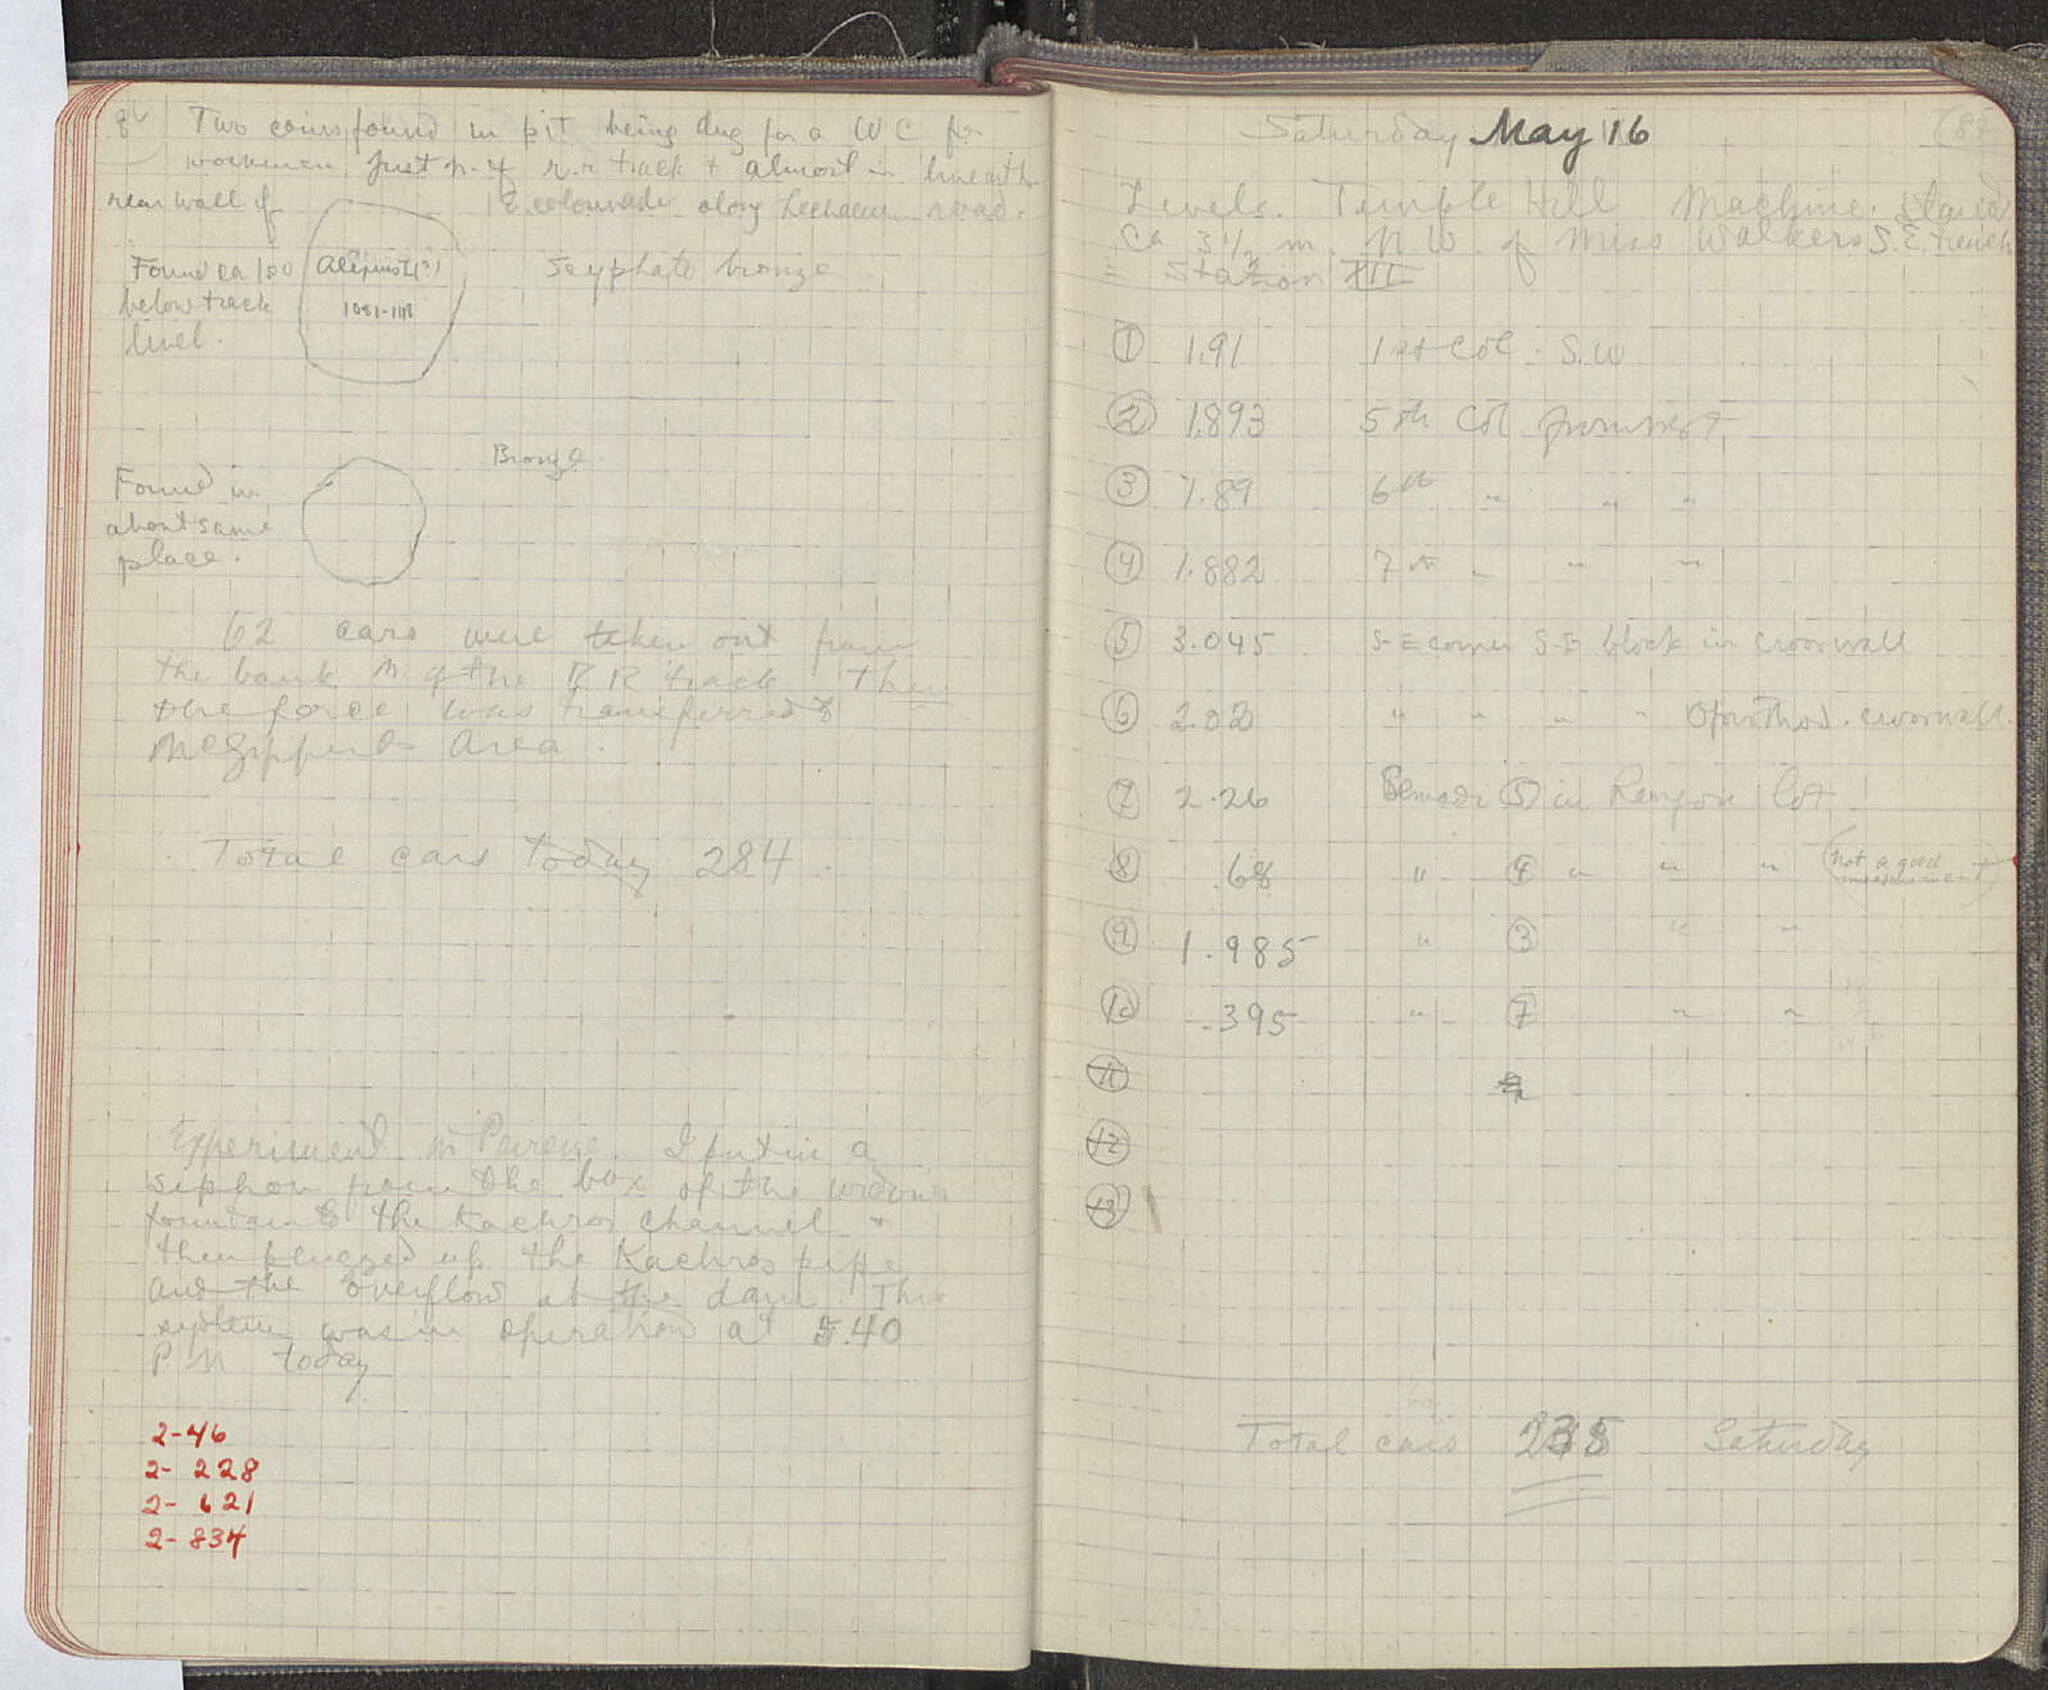 86 Two coins found in pit being dug for a W C for
workmen just n. of r.r track & almost in line with
rear wall of E. colonnade along Lechaeum road.
Found ca 1.00
below track
level.
Alexius I (?)
1081-1118
Scyphate bronze
Bronze.
Found in
about same
place.
62 cars were taken out from
the bank N. of the RR track then
the force was transferred to
area.
Total cars today 284.
Experiment in Peirene. I put in a
siphon from the box of the
fountain to the Kachros channel &
then plugged up the Kachros pipe
and the overflow at the dam. This
system was in operation at 5.40
P.M today
2-46
2- 228
2- 621
2- 834
Saturday May 16 (87
Levels. Temple Hill Machine. Placed
Ca 3 1/2 m. N.W. of Miss Walkers S.E. trench
= Station III
① 1.91 1st Col. S.W
② 1.893 5th Col from west
③ 1.89 6th " " "
④ 1.882 7th " " "
⑤ 3.045 S-E corner S.E block in crosswall
⑥ 2.02 " " " " Opisthod. crosswall.
⑦ 2.26 Bemade ⑤ in lot
⑧ .68 " ④ " " " (not a good
measurement)
⑨ 1.985 " ③ " "
⑩ .395 " ⑦ " "
⑪
⑫
⑬
Total cars 235 Saturday